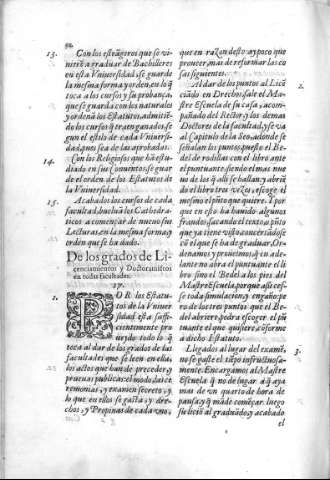 13. Con los estrãgeros que se vi-
nierẽ a graduar de Bachilleres
en esta Vniuersidad, se guarde
la mesma forma y orden en lo q̃
toca a los cursos y su probança,
que se guarda con los naturales
y ordenã los Estatutos, admitiẽ-
do los cursos q̃ traen ganados se
gun el estilo de cada Vniuersi-
dad, q̃ nos sea de las aprobadas.
14. Con los Religiosos que hã estu-
diado en sus Conuentos, se guar
de el orden de los Estatutos de
la Vniuersidad.
15. Acabados los cursos de cada
facultad, bueluã los Cathedra-
ticos a començar de nueuo sus
Lecturas en la mesma forma y
orden que se ha dado.
De los grados de Li-
cenciamientos y Doctoramiẽtos
en todas facultades.
27.
1. POR los Estatutos
de la Vniuer-
sidad está suffi-
cientemente pro
ueydo todo lo q̃
toca al dar de los grados de las
facultades que se leen en ella,
los actos que han de preceder, y
prueuas publicas: el modo, las ce
remonias, y examen secreto, y
lo que en ellos se gasta, y dere-
chos, y Propinas de cada vno,
que en razon desto ay poco que
proueer, mas de reformar las co
sas siguientes.
2. Al dar de los puntos al Licẽ
ciãdo en Drechos, sale el Maes
tre Escuela de su casa, acom-
pañado del Rector y los demas
Doctores de la facultad, y se va
al Capitulo de la Seo, adonde se
señalan los puntos, puesto el Be-
del de rodillas con el libro ante
el puntuante, siendo el mas nue
uo de los q̃ alli se hallan, y abriẽ
do el libro tres vezes, escoge el
mesmo el pũto que quiere. Y por
que en esto ha hauido algunos
fraudes, sacando el texto o pũto
que ya tiene visto, concertãdose
cõ el que se ha de graduar. Or-
denamos y proueemos, q̃ en ade-
lante no abra el puntuante el li
bro sino el Bedel a los pies del
Maestre Escuela, porque assi ces-
se toda simulacion y engaño, fue
ra de los tres puntos que el Be-
del abriere, podra escoger el pũ
tuante el que quisiere, cõforme
a dicho Estatuto.
3. Llegados al lugar del examẽ,
no se gaste el tiẽpo infructuosa-
mente. Encargamos al Maestre
Escuela q̃ no de lugar a q̃ aya
mas de vn quarto de hora de
pausa, y q̃ mãde començar. luego
su liciõ al graduãdo, y acabado
el